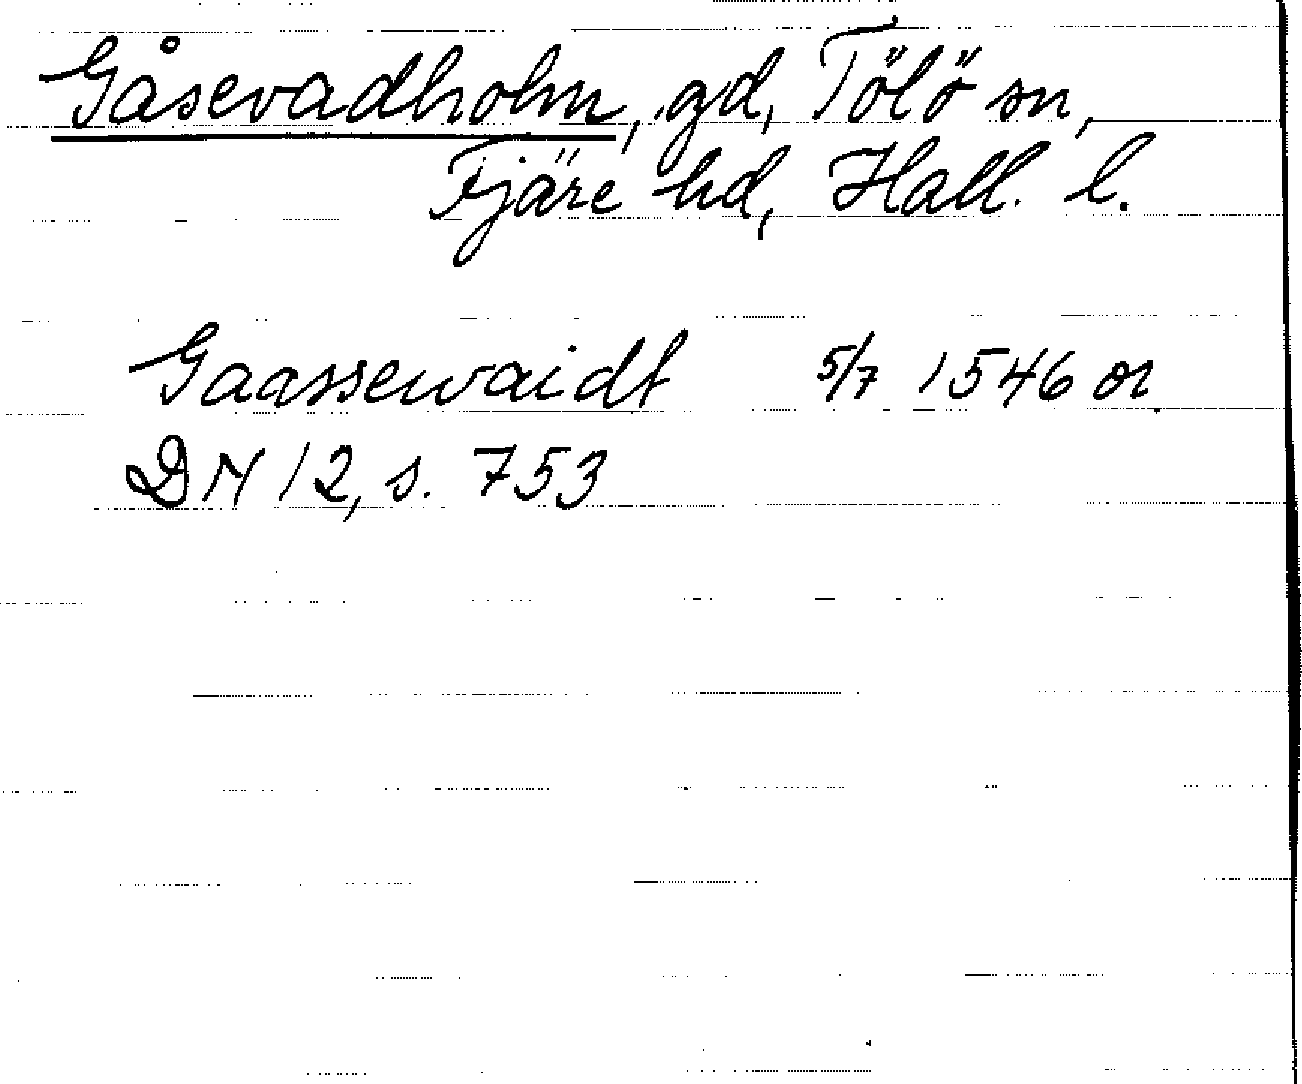 Gåsevadholm, gd, Tölö sn,
Fjäre hd, Hall. l.
Gaassewaidt 5/7 1546 or.
DN 12, s. 753